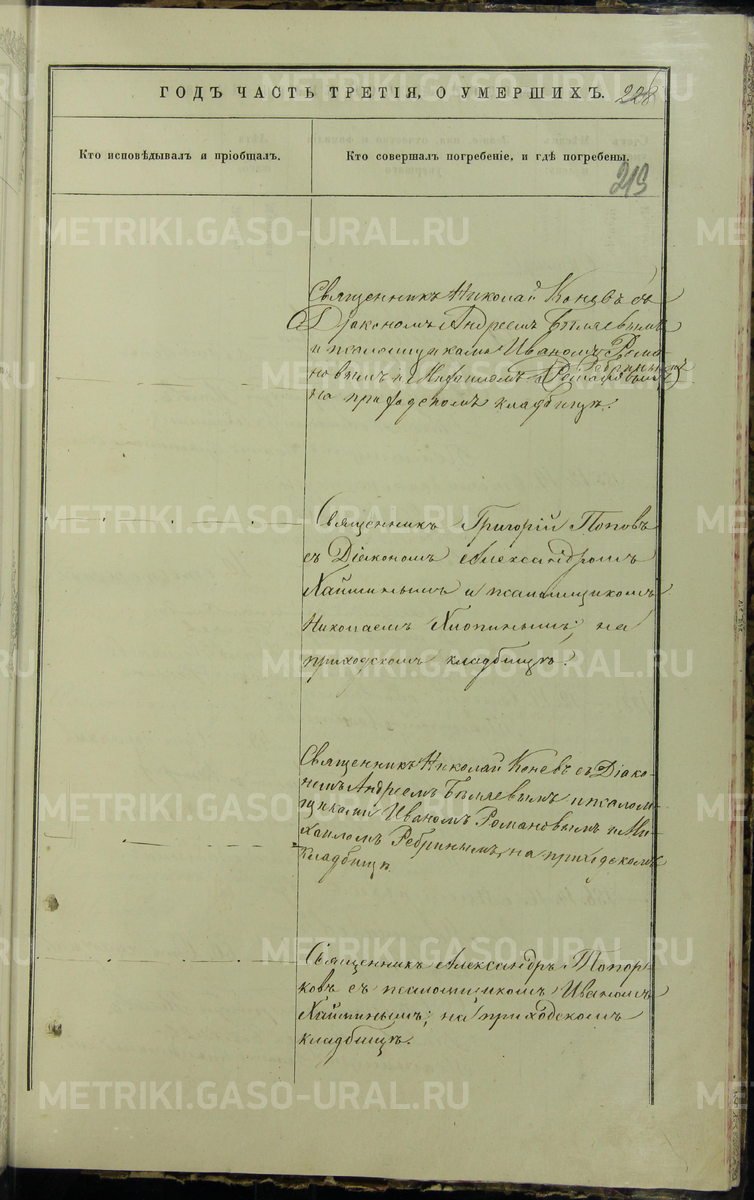 ГОДЪ ЧАСТЬ ТРЕТІЯ, О УМЕРШИХЪ. 228
Кто исповѣдывалъ и пріобщалъ.
Кто совершалъ погребеніе, и гдѣ погребены.
219
Священникъ Николай Коневъ съ
Діакономъ Андреемъ Бѣляевымъ
и псаломщиками Иваномъ Рома-
новымъ и Михаиломъ Ребринымъ
на приходскомъ кладбищѣ.
Священникъ Григорій Поповъ
съ Діакономъ Александромъ
Хайминымъ и псаломщикомъ
Николаемъ Хлопинымъ; на
приходскомъ кладбищѣ.
Священникъ Николай Коневъ съ Діако-
номъ Андреемъ Бѣляевымъ и псалом-
щиками Иваномъ Романовымъ и Ми-
хаиломъ Ребринымъ, на приходскомъ
кладбищѣ
Священникъ Александръ Топор-
ковъ съ псаломщикомъ Иваномъ
Хайминымъ; на приходскомъ
кладбищѣ.
METRIKI.GASO-URAL.RU